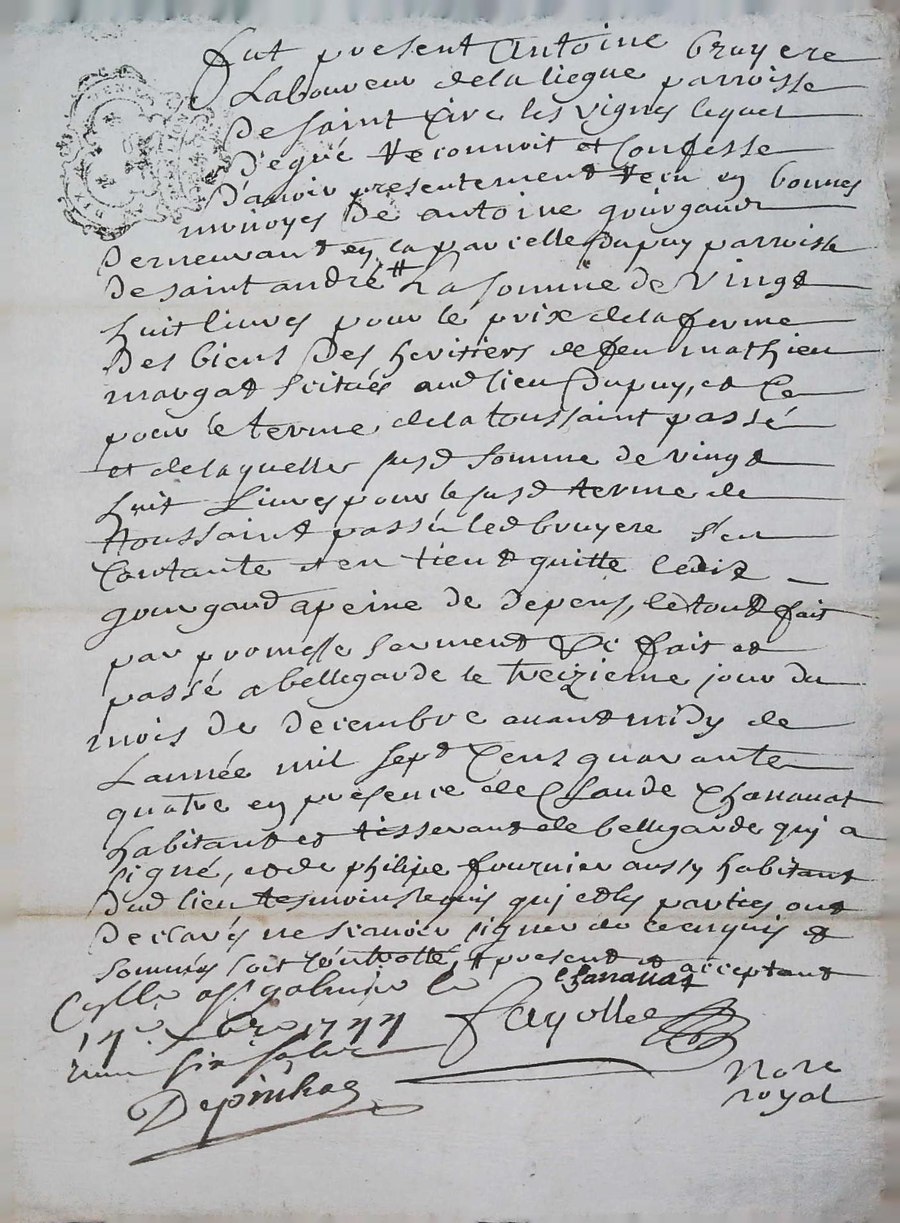 fut present antoine bruyere
Laboureur dela liegue parroisse
De saint Cire les vignes lequel
D'egré reconnoit et Confesse
D'avoir presentement reçu en bonnes
monoyes De antoine gourgaud
Demeurant en la parcelle Dupuy parroisse
De saint andré # La somme de vingt
huit livres pour le prix dela ferme
Des biens Des heritiers de feu mathieu
margat scitués aud lieu Dupuy, et Ce
pour le terme dela toussaint passé
et de laquelle susd somme de vingt
huit Livres pour le susd terme de
toussaint passé led bruyere s'en
Contante et en tient quitte ledit
gourgaud apeine de depens, le tout fait
par promesse serment &c fait et
passé a bellegarde le treizieme jour du
mois de decembre avant midy de
Lannée mil sept Cens quarante
quatre en presence de Claude Chanauat
habitant et tisserant de bellegarde qui a
signé, et de philipe fournier aussy habitant
Dud lieu tesmoins requis qui et les parties ont
Declarés ne scavoir signer de ce enquis et
sommés soit Controllé, # present et acceptant
Chanauat
a st galmier le
1744
Fayolle
six sols
Nore
royal